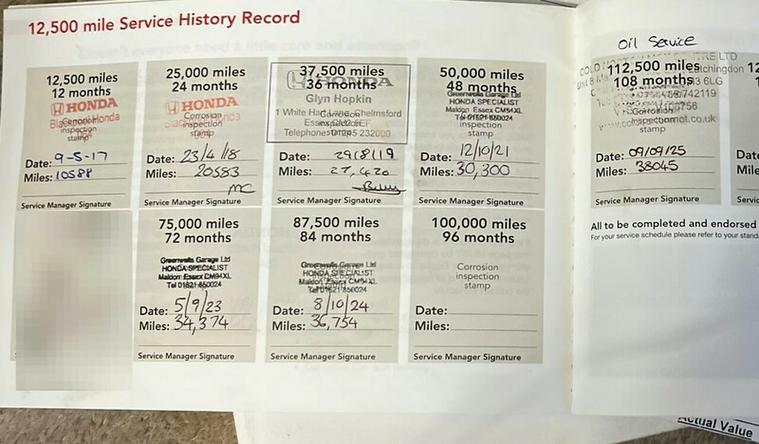 12,500 mile Service History Record
12,500 miles
12 months
HONDA
Corrosion
inspection
stamp
Date: 9-5-17
Miles: 10588
Service Manager Signature
25,000 miles
24 months
HONDA
Corrosion
inspection
stamp
Date: 23/4/18
Miles: 20583
MC
Service Manager Signature
37,500 miles
36 months
HONDA
Glyn Hopkin
1 White Hart Lane, Chelmsford
Essex
Telephone: 01245 232000
Date: 29/8/19
Miles: 27,420
Service Manager Signature
50,000 miles
48 months
Greenwells Garage Ltd
HONDA SPECIALIST
Maldon Essex CM9 4XL
Tel 01621 850024
inspection
stamp
Date: 12/10/21
Miles: 30,300
Service Manager Signature
75,000 miles
72 months
Greenwells Garage Ltd
HONDA SPECIALIST
Maldon Essex CM9 4XL
Tel 01621 850024
Date: 5/9/23
Miles: 34,374
Service Manager Signature
87,500 miles
84 months
Greenwells Garage Ltd
HONDA SPECIALIST
Maldon Essex CM9 4XL
Tel 01621 850024
Date: 8/10/24
Miles: 36,754
Service Manager Signature
100,000 miles
96 months
Corrosion
inspection
stamp
Date:
Miles:
Service Manager Signature
Oil Service
112,500 miles
108 months
stamp
Date: 09/09/25
Miles: 38045
Service Manager Signature
12
Date
Mile
Servic
All to be completed and endorsed
For your service schedule please refer to your stand
Actual Value